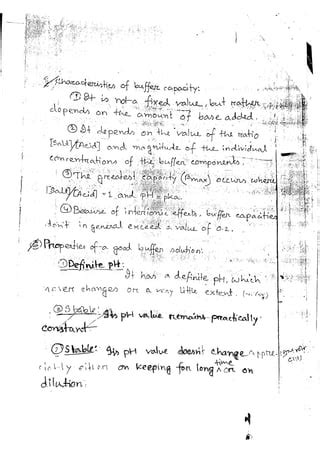 Characteristics of buffer capacity:
① It is not a fixed value, but rather
depends on the amount of base added.
② It depends on the value of the ratio
[Salt]/[Acid] and magnitude of the individual
concentrations of the buffer components.
③ The greatest capacity (βmax) occurs where
[Salt]/[Acid] = 1 and pH = pka.
④ Because of interionic effects, buffer capacities
don't in general exceed a value of 0.2.
Properties of a good buffer solution:
① Definite pH:
It has a definite pH, which
never changes or a very little extent.
② Stable: Its pH value remains practically
constant
② Stable: Its pH value doesn't change
on keeping for long time or on
dilution.